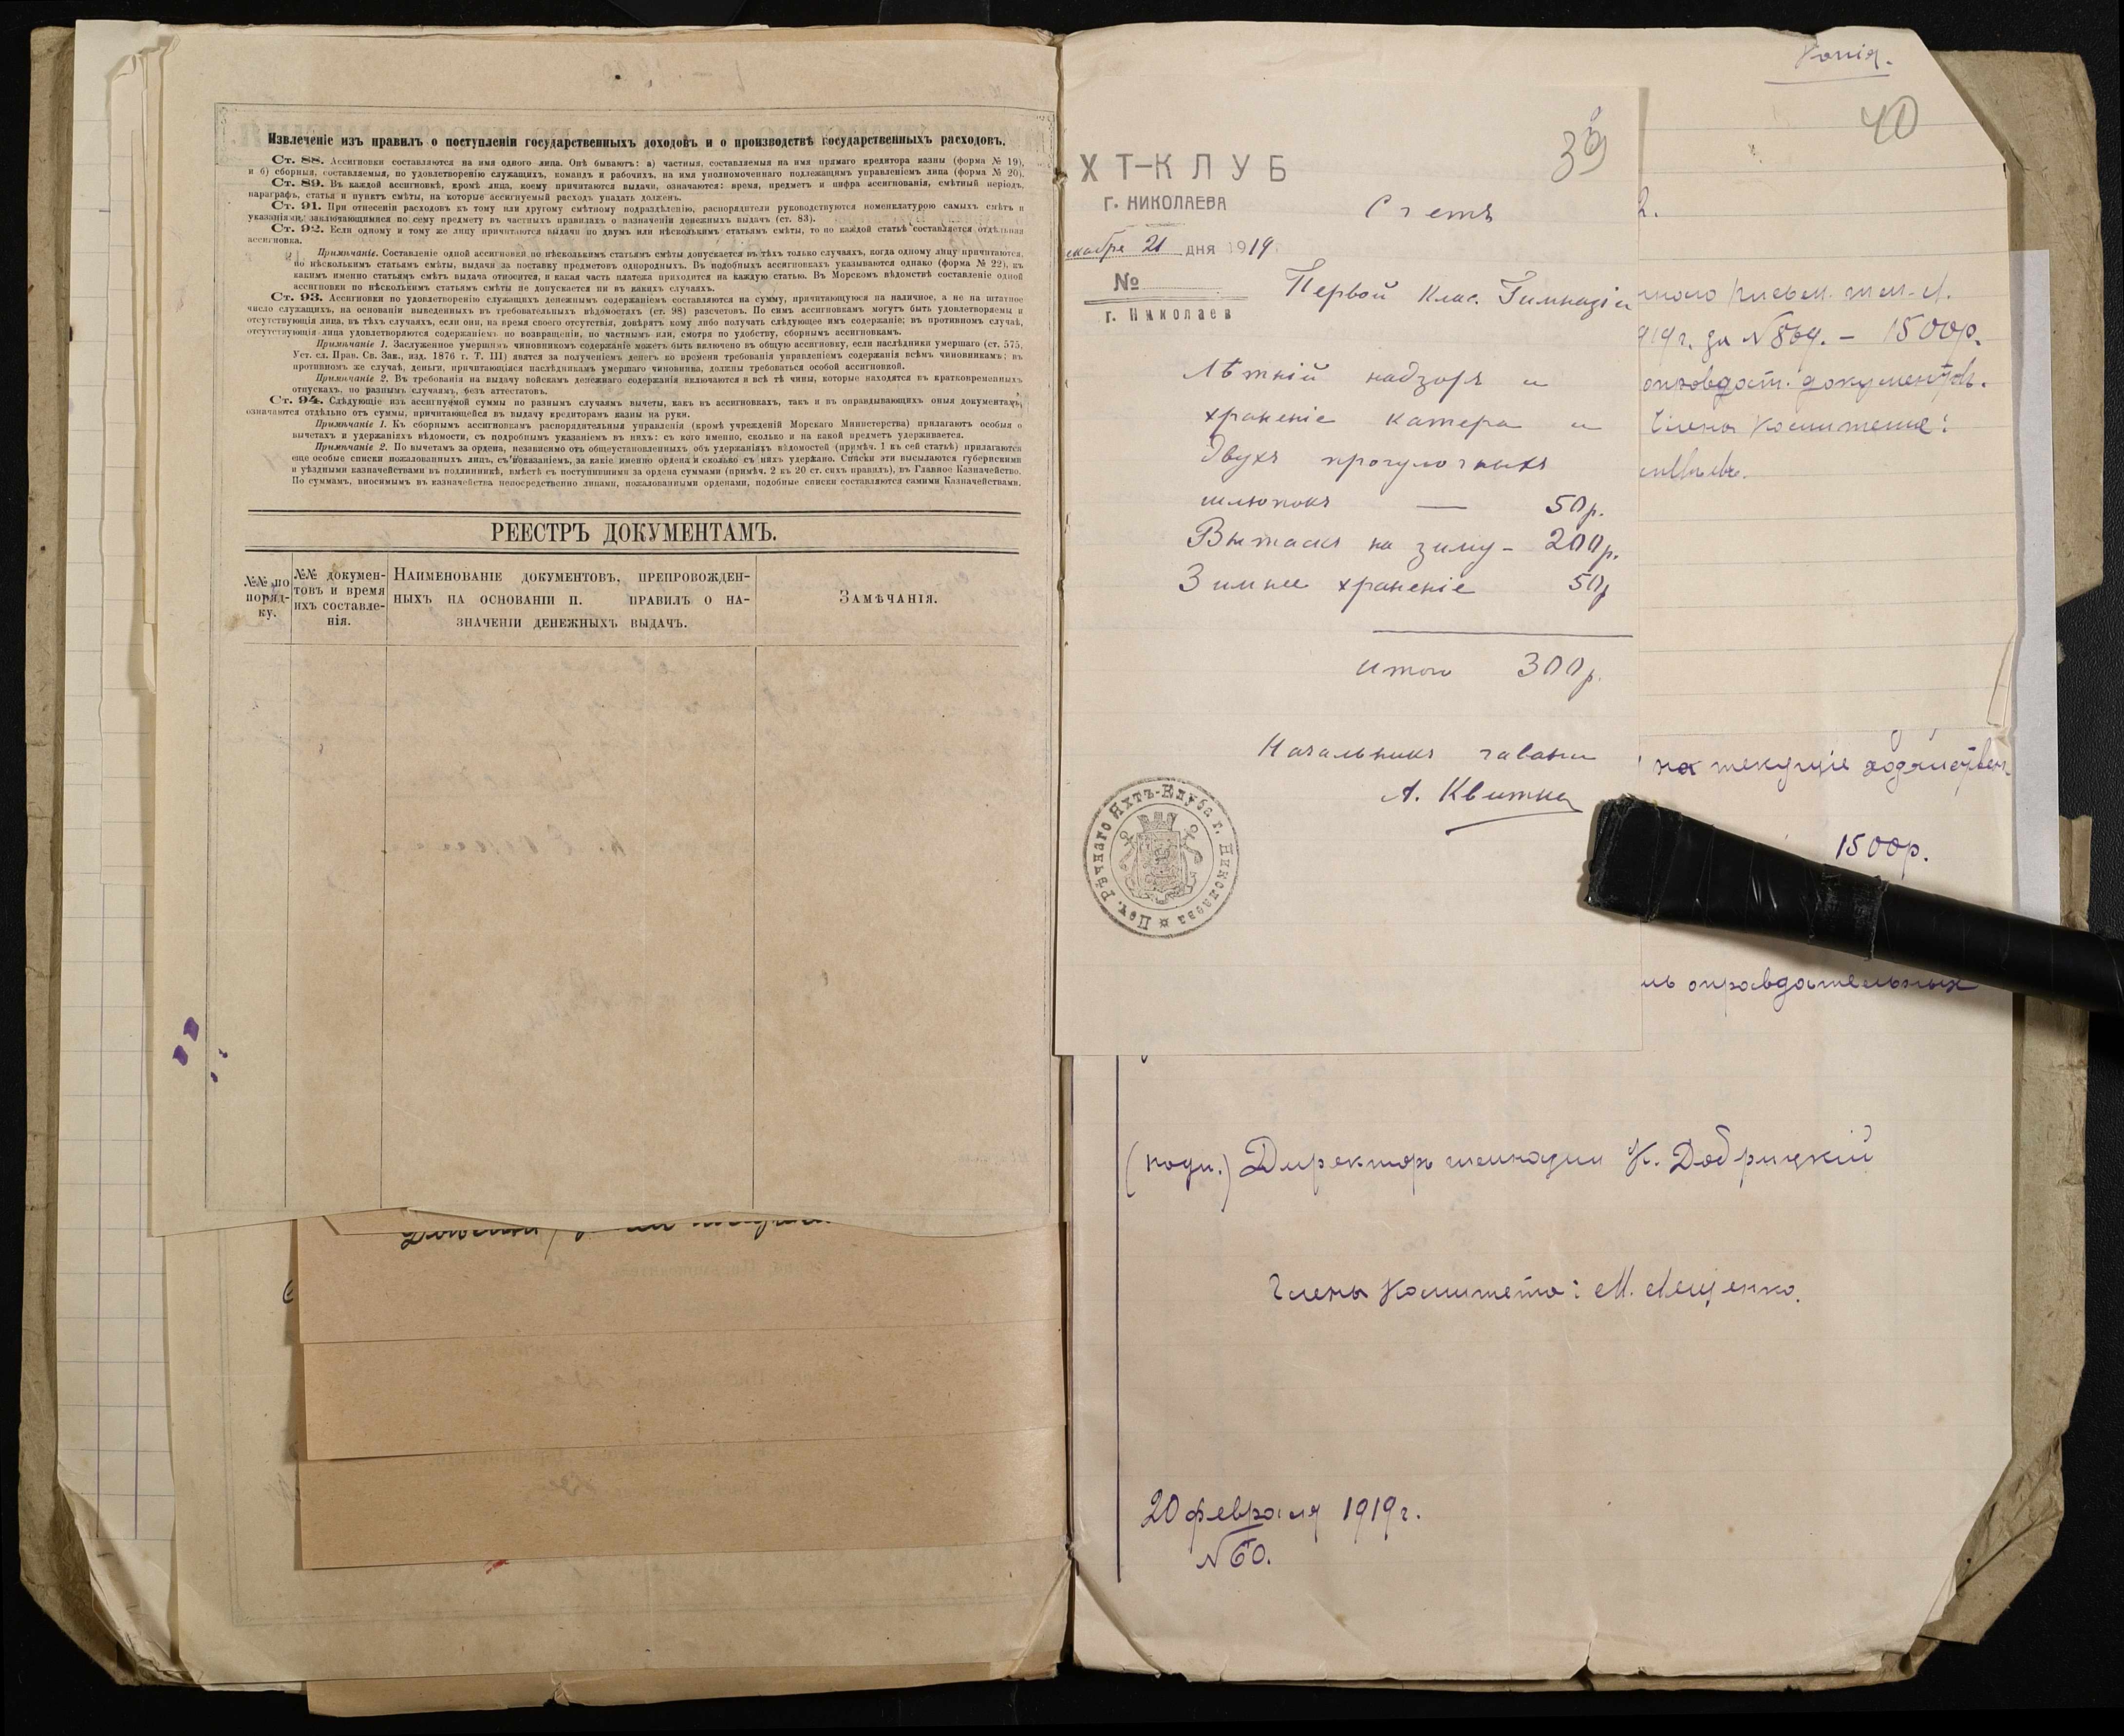 Извлеченіе изъ правилъ о поступленіи государственныхъ доходовъ и о производствѣ государственныхъ расходовъ.
Ст. 88. Ассигновки составляются на имя одного лица. Онѣ бываютъ: а) частныя, составляемыя на имя прямаго кредитора казны (форма № 19),
и б) сборныя, составляемыя, по удовлетворенію служащихъ, командъ и рабочихъ, на имя уполномоченнаго подлежащимъ управленіемъ лица (форма № 20).
Ст. 89. Въ каждой ассигновкѣ, кромѣ лица, коему причитаются выдачи, означаются: время, предметъ и цифра ассигнованія, смѣтный періодъ,
параграфъ, статья и пунктъ смѣты, на которые ассигнуемый расходъ упадать долженъ.
Ст. 91. При отнесеніи расходовъ къ тому или другому смѣтному подраздѣленію, распорядители руководствуются номенклатурою самыхъ смѣтъ и
указаніями, заключающимися по сему предмету въ частныхъ правилахъ о назначеніи денежныхъ выдачъ (ст. 83).
Ст. 92. Если одному и тому же лицу причитаются выдачи по двумъ или нѣсколькимъ статьямъ смѣты, то по каждой статьѣ составляется отдѣльная
ассигновка.
Примѣчаніе. Составленіе одной ассигновки по нѣсколькимъ статьямъ смѣты допускается въ тѣхъ только случаяхъ, когда одному лицу причитаются,
по нѣсколькимъ статьямъ смѣты, выдачи за поставку предметовъ однородныхъ. Въ подобныхъ ассигновкахъ указываются однако (форма № 22), къ
какимъ именно статьямъ смѣтъ выдача относится, и какая часть платежа приходится на каждую статью. Въ Морскомъ вѣдомствѣ составленіе одной
ассигновки по нѣсколькимъ статьямъ смѣты не допускается ни въ какихъ случаяхъ.
Ст. 93. Ассигновки по удовлетворенію служащихъ денежнымъ содержаніемъ составляются на сумму, причитающуюся на наличное, а не на штатное
число служащихъ, на основаніи выведенныхъ въ требовательныхъ вѣдомостяхъ (ст. 98) разсчетовъ. По симъ ассигновкамъ могутъ быть удовлетворяемы и
отсутствующія лица, въ тѣхъ случаяхъ, если они, на время своего отсутствія, довѣрятъ кому либо получать слѣдующее имъ содержаніе; въ противномъ случаѣ,
отсутствующія лица удовлетворяются содержаніемъ по возвращеніи, по частнымъ или, смотря по удобству, сборнымъ ассигновкамъ.
Примѣчаніе 1. Заслуженное умершимъ чиновникомъ содержаніе можетъ быть включено въ общую ассигновку, если наслѣдники умершаго (ст. 575,
Уст. сл. Прав. Св. Зак., изд. 1876 г. Т. III) явятся за полученіемъ денегъ ко времени требованія управленіемъ содержанія всѣмъ чиновникамъ; въ
противномъ же случаѣ, деньги, причитающіяся наслѣдникамъ умершаго чиновника, должны требоваться особой ассигновкой.
Примѣчаніе 2. Въ требованія на выдачу войскамъ денежнаго содержанія включаются и всѣ тѣ чины, которые находятся въ кратковременныхъ
отпускахъ, по разнымъ случаямъ, безъ аттестатовъ.
Ст. 94. Слѣдующіе изъ ассигнуемой суммы по разнымъ случаямъ вычеты, какъ въ ассигновкахъ, такъ и въ оправдывающихъ оныя документахъ,
означаются отдѣльно отъ суммы, причитающейся въ выдачу кредиторамъ казны на руки.
Примѣчаніе 1. Къ сборнымъ ассигновкамъ распорядительныя управленія (кромѣ учрежденій Морскаго Министерства) прилагаютъ особыя о
вычетахъ и удержаніяхъ вѣдомости, съ подробнымъ указаніемъ въ нихъ: съ кого именно, сколько и на какой предметъ удерживается.
Примѣчаніе 2. По вычетамъ за ордена, независимо отъ общеустановленныхъ объ удержаніяхъ вѣдомостей (примѣч. 1 къ сей статьѣ) прилагаются
еще особые списки пожалованныхъ лицъ, съ показаніемъ, за какіе именно ордена и сколько съ нихъ удержано. Списки эти высылаются губернскими
и уѣздными казначействами въ подлинникѣ, вмѣстѣ съ поступившими за ордена суммами (примѣч. 2 къ 20 ст. сихъ правилъ), въ Главное Казначейство.
По суммамъ, вносимымъ въ казначейства непосредственно лицами, пожалованными орденами, подобные списки составляются самими Казначействами.
РЕЕСТРЪ ДОКУМЕНТАМЪ.
№№ по поряд-ку.
№№ докумен-товъ и время ихъ составле-нія.
Наименованіе документовъ, препровожден-
ныхъ на основаніи п. правилъ о на-
значеніи денежныхъ выдачъ.
Замѣчанія.
39
ХТ-КЛУБ
г. НИКОЛАЕВА
екабря 21 дня 1919
№
г. Николаев
Счетъ
Первой Клас. Гимназіи
Лѣтній надзоръ и
храненіе катера и
Двухъ прогулочныхъ
шлюпокъ — 50р.
Вытаскъ на зиму - 200р.
Зимнее храненіе 50р
итого 300р.
Начальникъ гавани
А. Квитка
Печ. Рѣчнаго Яхтъ-Клуба г. Николаева
Копія.
40
2.
919 г. за №869. — 1500р.
оправдат. документовъ.
Члены Комитета:
на текущіе хозяйствен
1500р.
оправдательныхъ
(подп.) Директоръ гимназіи К. Добрицкій
Члены Комитета: М. Лещенко.
20 февраля 1919 г.
№60.